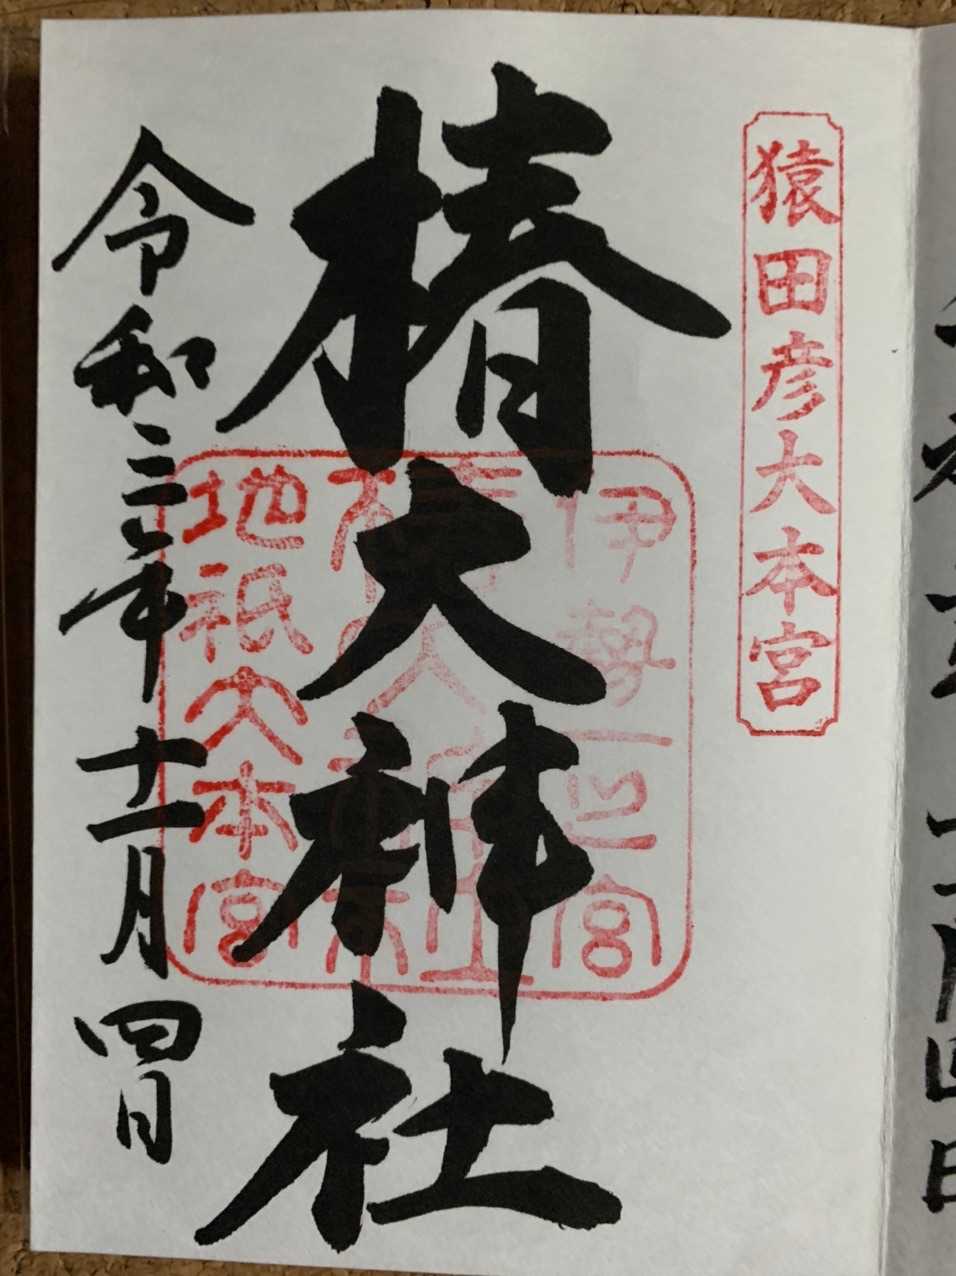 猿田彦大本宮
椿大神社
伊勢一之宮
椿大神社
地祇大本宮
令和三年十一月四日